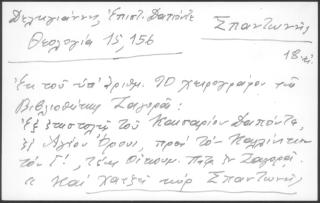 Δεληγιάννης Ἐπιστ. Δαπόντε
Σπαντωνῆς
Θεολογία 15, 156
18 αἰ.
Ἐκ τοῦ ὑπ' ἀριθμ. 90 χειρογράφου τῆς
Βιβλιοθήκης Ζαγορᾶς:
Ἐξ ἐπιστολῆς τοῦ Καισαρίου Δαπόντε,
ἐξ Ἁγίου Ὄρους, πρός τόν Καλλίνικον
τόν Γ΄, Οἰκουμ. Πατρ. ἐν Ζαγορᾷ.
Καί χατζῆ κύρ Σπαντωνῆς